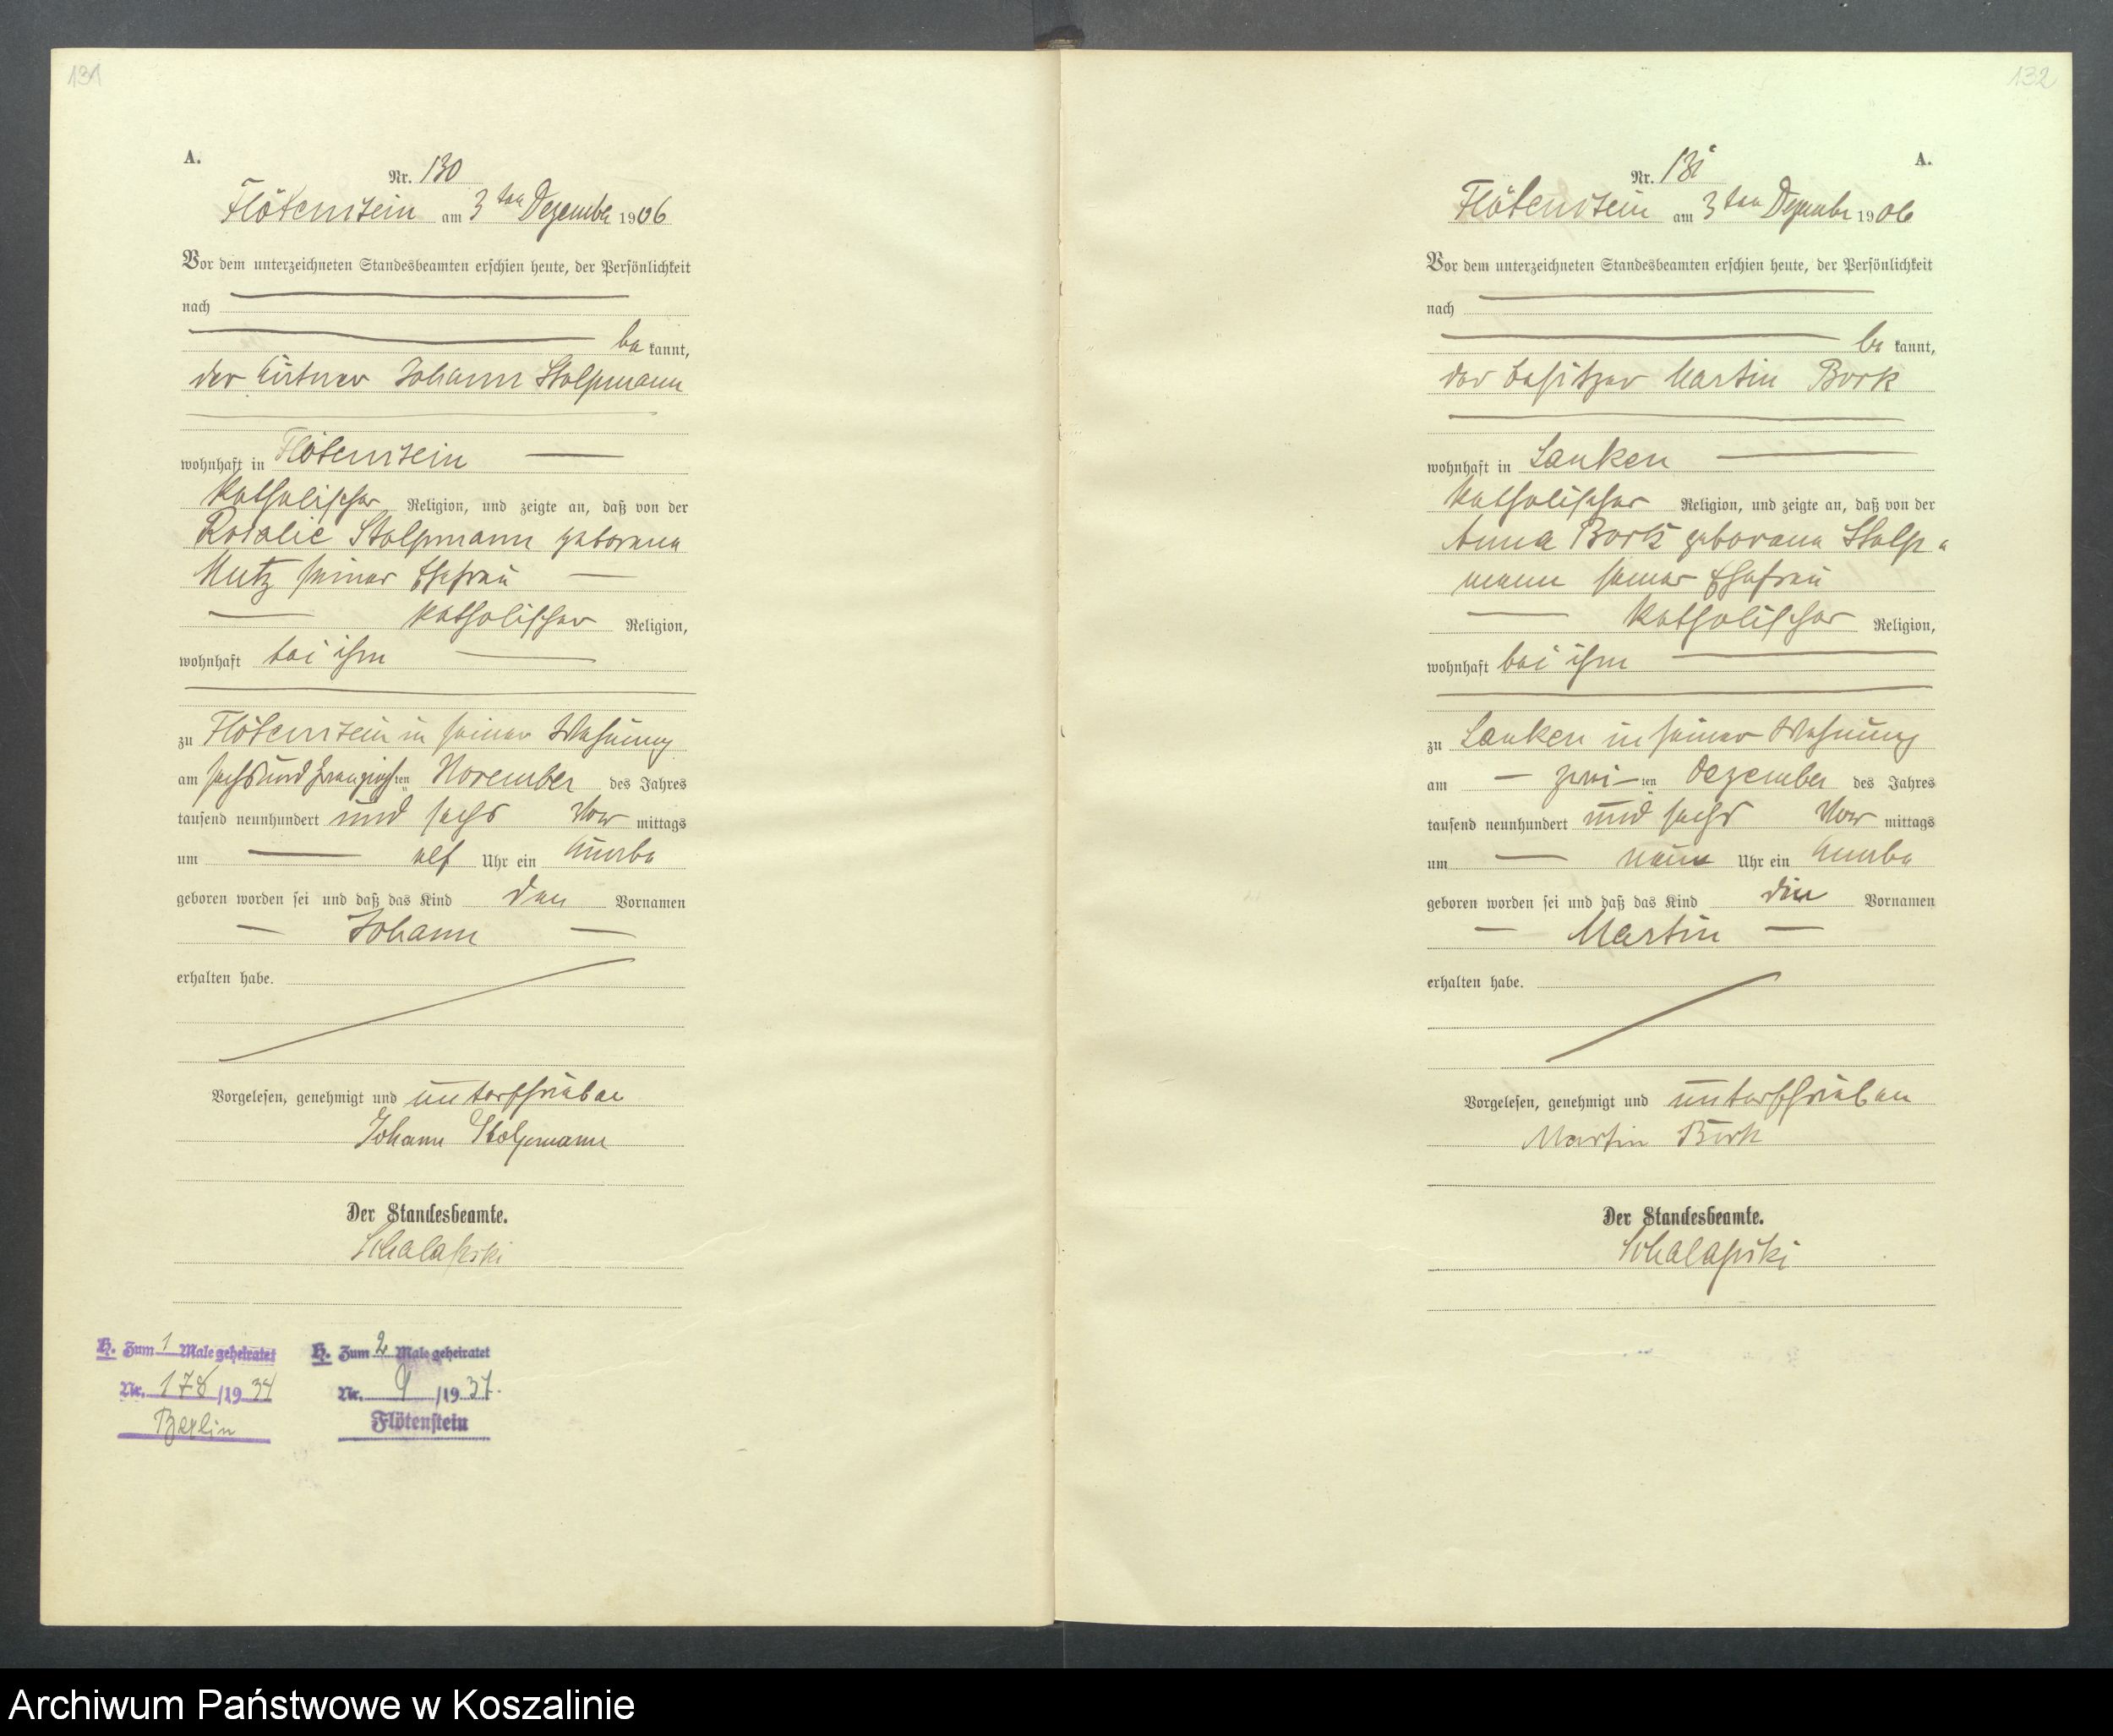 131
A.
Nr. 130
Flötenstein am 3ten Dezember 1906
Vor dem unterzeichneten Standesbeamten erschien heute, der Persönlichkeit
nach
be kannt,
der Johann Stolpmann
wohnhaft in Flötenstein
katholischer Religion, und zeigte an, daß von der
Rosalie Stolpmann geborene
Mutz seiner Ehefrau
katholischer Religion,
wohnhaft bei ihm
zu Flötenstein in seiner Wohnung
am sechsundzwanzigsten November des Jahres
tausend neunhundert und sechs Vor mittags
um elf Uhr ein Knabe
geboren worden sei und daß das Kind den Vornamen
Johann
erhalten habe.
Vorgelesen, genehmigt und unterschrieben
Johann Stolpmann
Der Standesbeamte.
Schalapski
H. Zum 1 Male geheiratet
Nr. 178/1934
Berlin
H. Zum 2 Male geheiratet
Nr. 9/1937.
Flötenstein
132
A.
Nr. 131
Flötenstein am 3ten Dezember 1906
Vor dem unterzeichneten Standesbeamten erschien heute, der Persönlichkeit
nach
be kannt,
der Besitzer Martin Bork
wohnhaft in Lanken
katholischer Religion, und zeigte an, daß von der
Anna Bork geborene Stolp-
mann seiner Ehefrau
katholischer Religion,
wohnhaft bei ihm
zu Lanken in seiner Wohnung
am zweiten Dezember des Jahres
tausend neunhundert und sechs Vor mittags
um neun Uhr ein Knabe
geboren worden sei und daß das Kind den Vornamen
Martin
erhalten habe.
Vorgelesen, genehmigt und unterschrieben
Martin Bork
Der Standesbeamte.
Schalapski
Archiwum Państwowe w Koszalinie